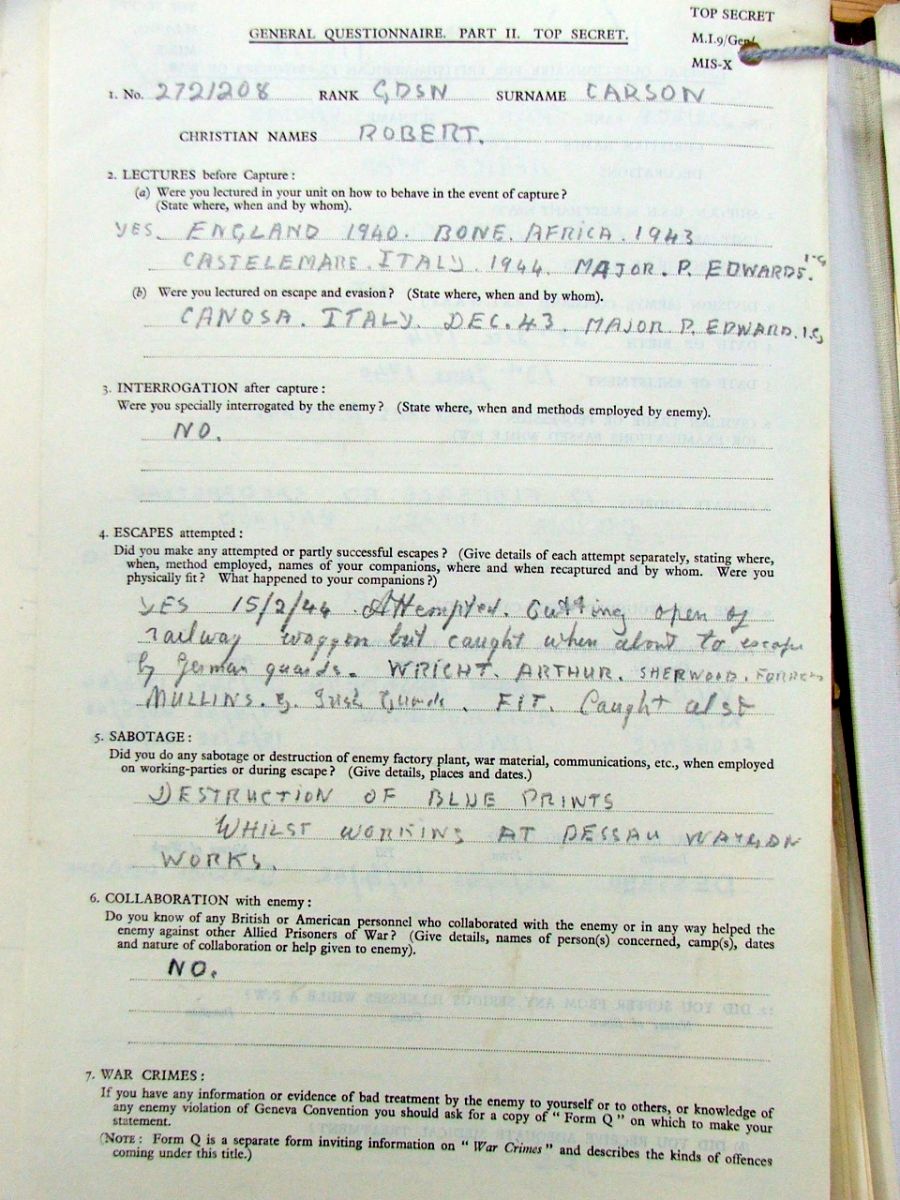 TOP SECRET
GENERAL QUESTIONNAIRE. PART II. TOP SECRET.
M.I.9/Gen/
MIS-X
1. No. 2721208 RANK GDSN SURNAME CARSON
CHRISTIAN NAMES ROBERT.
2. LECTURES before Capture :
(a) Were you lectured in your unit on how to behave in the event of capture ?
(State where, when and by whom).
YES. ENGLAND 1940. BONE. AFRICA. 1943
CASTELEMARE. ITALY. 1944. MAJOR. P. EDWARDS. I.G
(b) Were you lectured on escape and evasion ? (State where, when and by whom).
CANOSA. ITALY. DEC. 43. MAJOR P. EDWARD. I.G
3. INTERROGATION after capture :
Were you specially interrogated by the enemy ? (State where, when and methods employed by enemy).
NO.
4. ESCAPES attempted :
Did you make any attempted or partly successful escapes ? (Give details of each attempt separately, stating where,
when, method employed, names of your companions, where and when recaptured and by whom. Were you
physically fit ? What happened to your companions ?)
YES 15/2/44 Attempted. Cutting open of
railway waggon but caught when about to escape
by German guards. WRIGHT. ARTHUR. SHERWOOD.
MULLINS. G. Irish Guards. FIT. Caught also
5. SABOTAGE :
Did you do any sabotage or destruction of enemy factory plant, war material, communications, etc., when employed
on working-parties or during escape ? (Give details, places and dates.)
DESTRUCTION OF BLUE PRINTS
WHILST WORKING AT DESSAU WAGGON
WORKS.
6. COLLABORATION with enemy :
Do you know of any British or American personnel who collaborated with the enemy or in any way helped the
enemy against other Allied Prisoners of War ? (Give details, names of person(s) concerned, camp(s), dates
and nature of collaboration or help given to enemy).
NO.
7. WAR CRIMES :
If you have any information or evidence of bad treatment by the enemy to yourself or to others, or knowledge of
any enemy violation of Geneva Convention you should ask for a copy of " Form Q " on which to make your
statement.
(NOTE : Form Q is a separate form inviting information on " War Crimes " and describes the kinds of offences
coming under this title.)